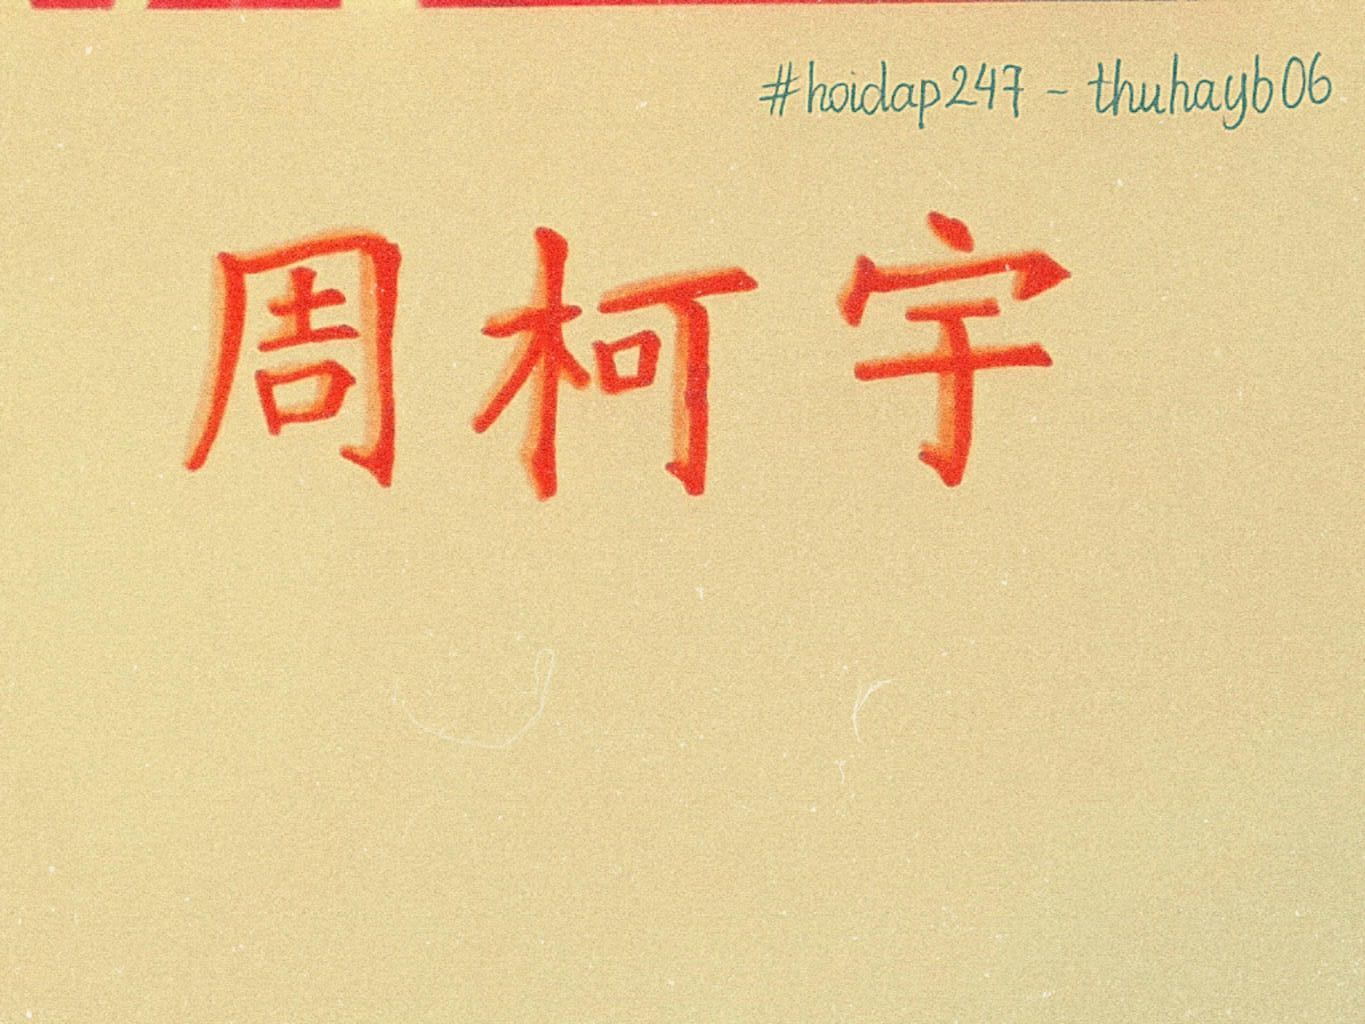 #hoidap247 - thuhayb06
周柯宇